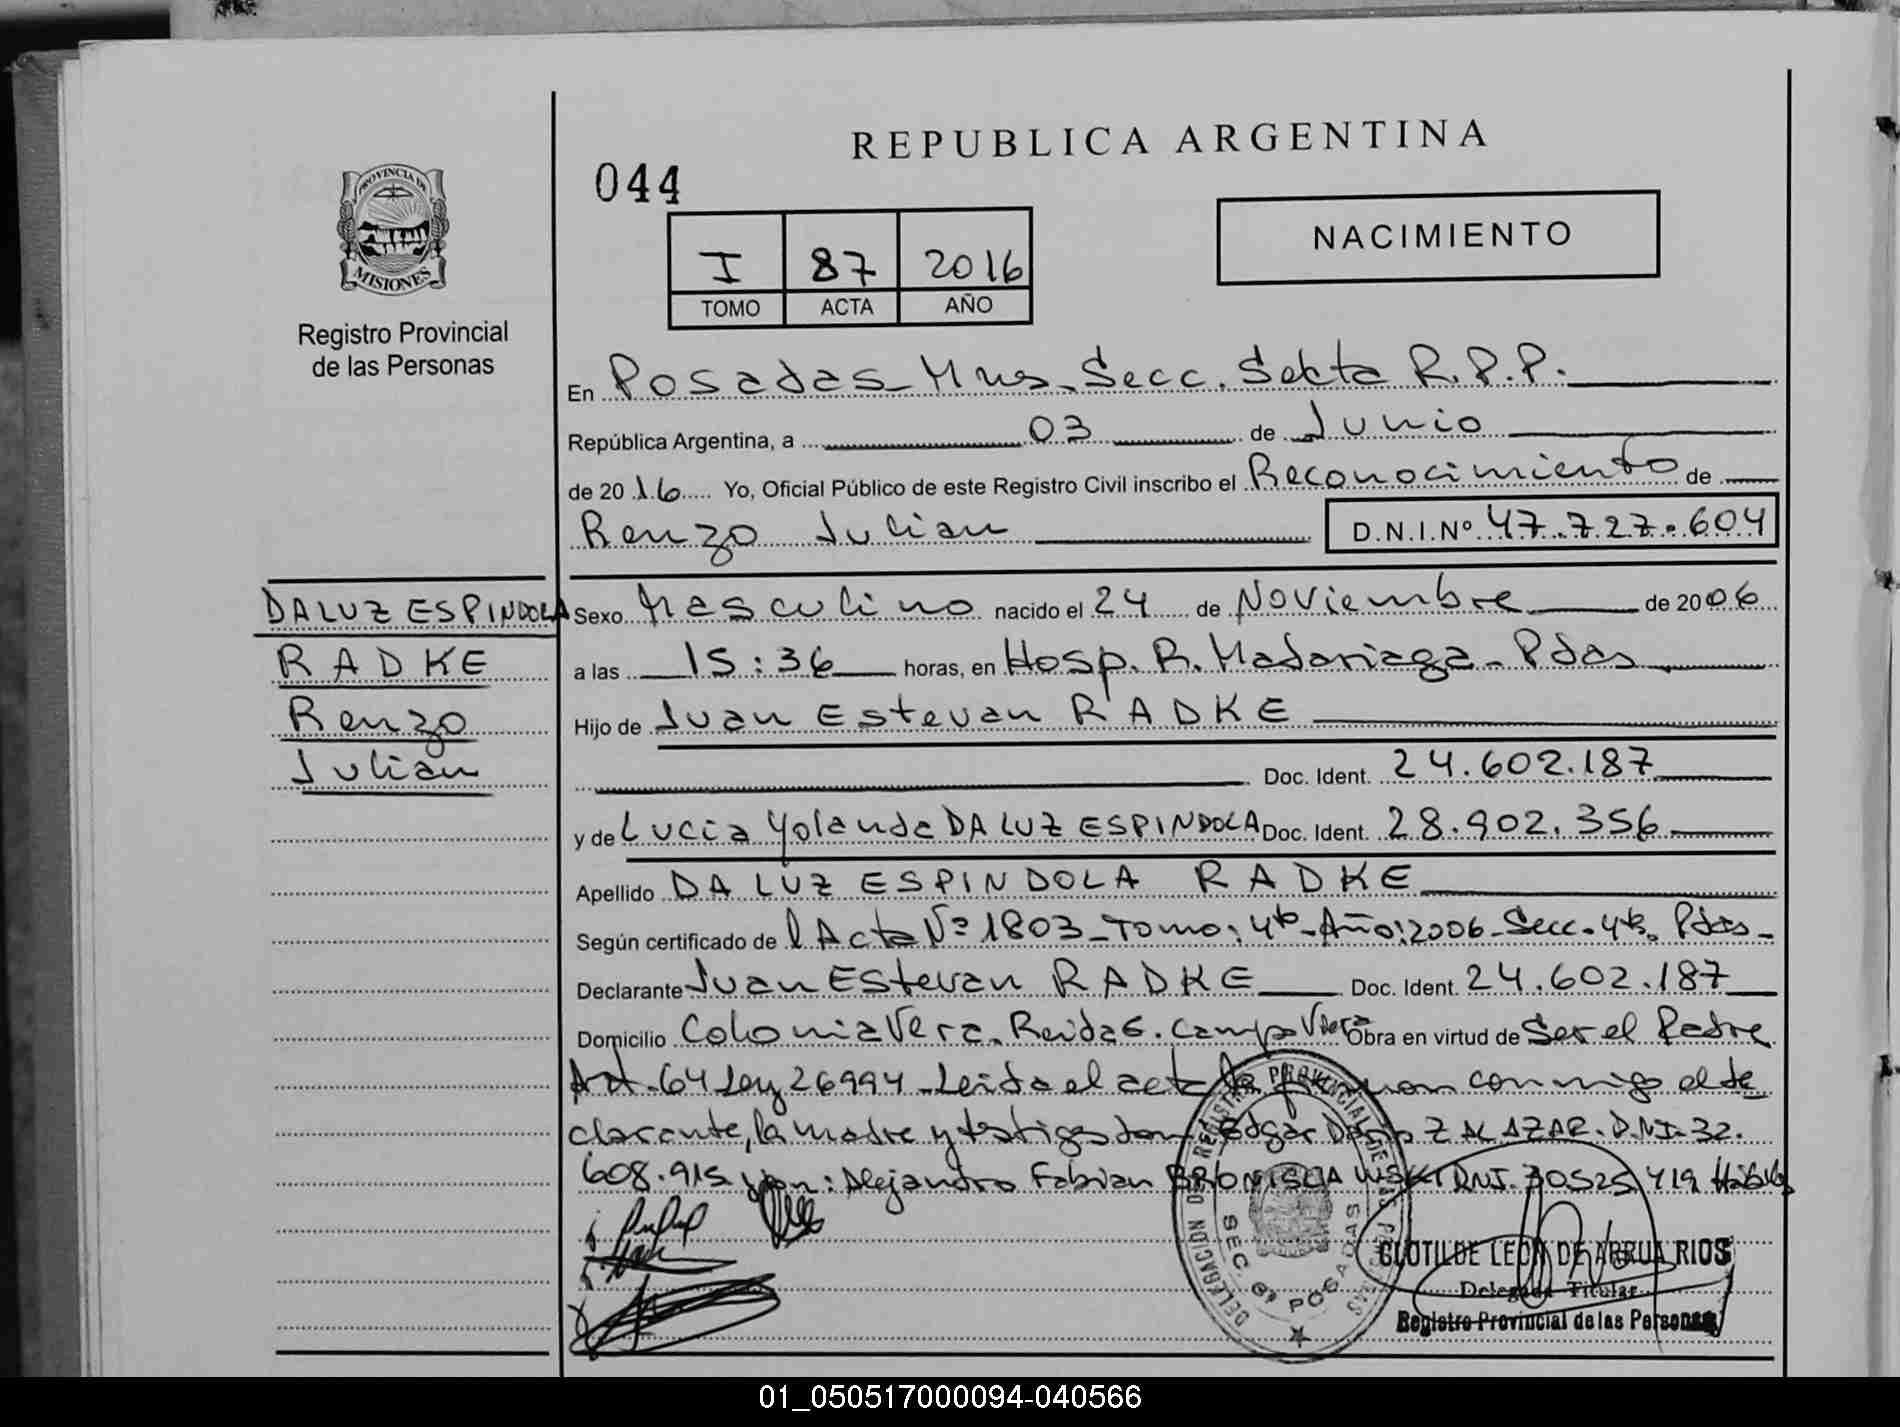 REPUBLICA ARGENTINA
044
NACIMIENTO
I 87 2016
TOMO ACTA AÑO
PROVINCIA DE
MISIONES
Registro Provincial
de las Personas
En Posadas - Mnes. Secc. Sexta R.P.P.
República Argentina, a 03 de Junio
de 2016 Yo, Oficial Público de este Registro Civil inscribo el Reconocimiento de
Renzo Julian D.N.I.Nº 47.727.604
DA LUZ ESPINDOLA
RADKE
Renzo
Julian
Sexo Masculino nacido el 24 de Noviembre de 2006
a las 15:36 horas, en Hosp. R. Madariaga - Pdas
Hijo de Juan Estevan RADKE
Doc. Ident. 24.602.187
y de Lucia Yolanda DA LUZ ESPINDOLA Doc. Ident. 28.902.356
Apellido DA LUZ ESPINDOLA RADKE
Según certificado de l Acta Nº 1803 - Tomo: 4to - Año: 2006 - Secc. 4ta. Pdas -
Declarante Juan Estevan RADKE Doc. Ident. 24.602.187
Domicilio Colonia Vera. Campo Viera Obra en virtud de Ser el Padre
Art. 64 Ley 26994 - Leida el acta la firman conmigo el de
clarante, la madre y testigos don: Edgar Dario ZALAZAR. D.N.I. 32.
608.915 y don: Alejandro Fabian DNI. 30525419 Hábiles
DELEGACION DEL REGISTRO PROVINCIAL DE LAS PERSONAS
SEC. 6ª POSADAS
CLOTILDE LEON DE ARRUA RIOS
Delegada Titular
Registro Provincial de las Personas
01_050517000094-040566